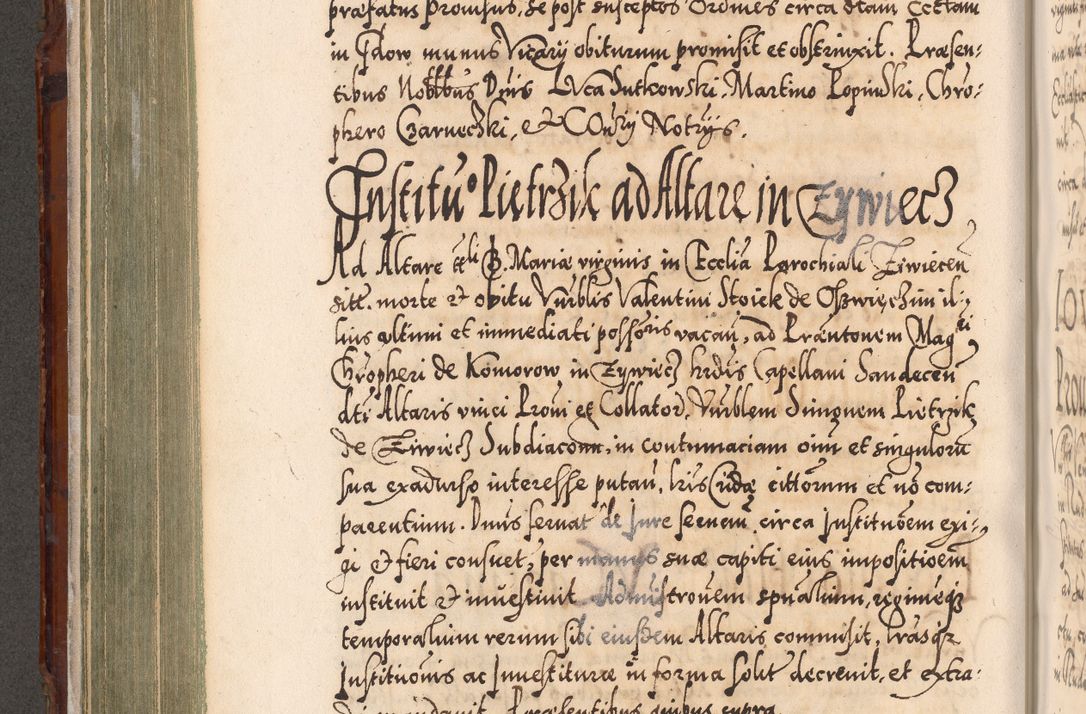 præfatus Provisus, se post susceptos Ordines circa dtam Eccliam
in Idow munus Vicarij obiturum promisit et obstrinxit. Præsen:
tibus Nobbus Dnis LVca Sutkowski, Martino Lopinski, Chro:
phero Czarneczki, et C Notrijs.
Institu° Pietrzik ad Altare in Zywiecz
Ad Altare ttli B. Mariæ virginis in Ecclia Parochiali Ziwiecen
sitt. morte et obitu Vnrblis Valentini Stoiek de Oszwięczim il:
lius ultimi et immediati possoris vacan, ad Præntonem Magci
Chropheri de Komorow in Zywiecz hrdis Capellani Sandecen
dti Altaris vinci Provi et Collator, Vnrblem Simonem Pietrzik
de Ziwiecz Subdiaconn, in contumaciam oim et singuloru
sua exadurso interesse putan, lris Cuidæ cittorum et no com:
parentium. Dnus servat de Jure servem circa Institnoem exi:
gi et fieri consvet, per manus suæ capiti eius impositioem
instituit et investivit Admistronem spualium, regimeqz
temporalium rerum sibi eiusdem Altaris commisit, lrasqz
Institnonis ac Investituræ in forma solit decrevit, et extra:
Præsentibus quibus supra